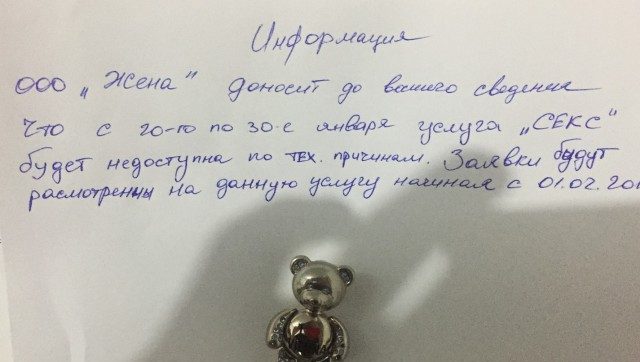 Информация
ООО „Жена" доносит до вашего сведение
Что с 20-го по 30-е января услуга „СЕКС"
будет недоступна по тех. причинам. Заявки будут
расмотренны на данную услугу начинам с 01.02.20